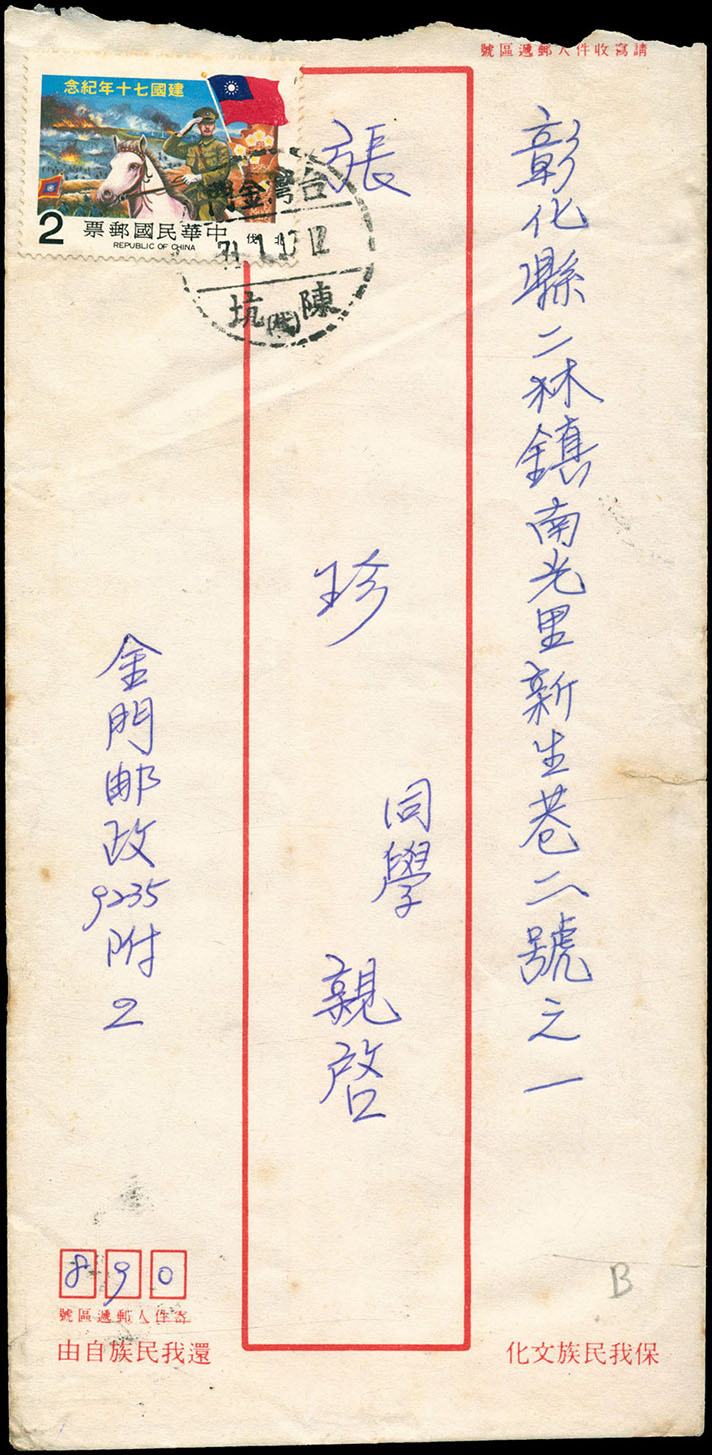 請寫收件人郵遞區號
彰化縣二林鎮南光里新生巷二號之一
張 珍 同學 親啓
建國七十年紀念
北伐
中華民國郵票
REPUBLIC OF CHINA
2
台灣金門
71.1.17.12
陳坑
金門邮政9235附2
890
寄件人郵遞區號
還我民族自由
保我民族文化
B